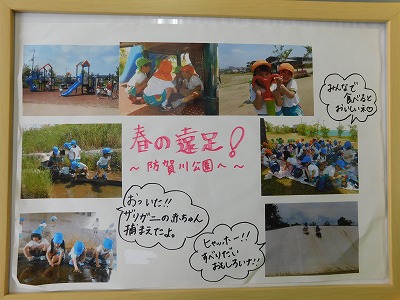 みんなで
食べると
おいしいネ♡
春の遠足!
～防賀川公園へ～
おっいた!!
ザリガニの赤ちゃん
捕まえたよ。
ヒャッホー!!
すべりだい
おもしろいナ!!